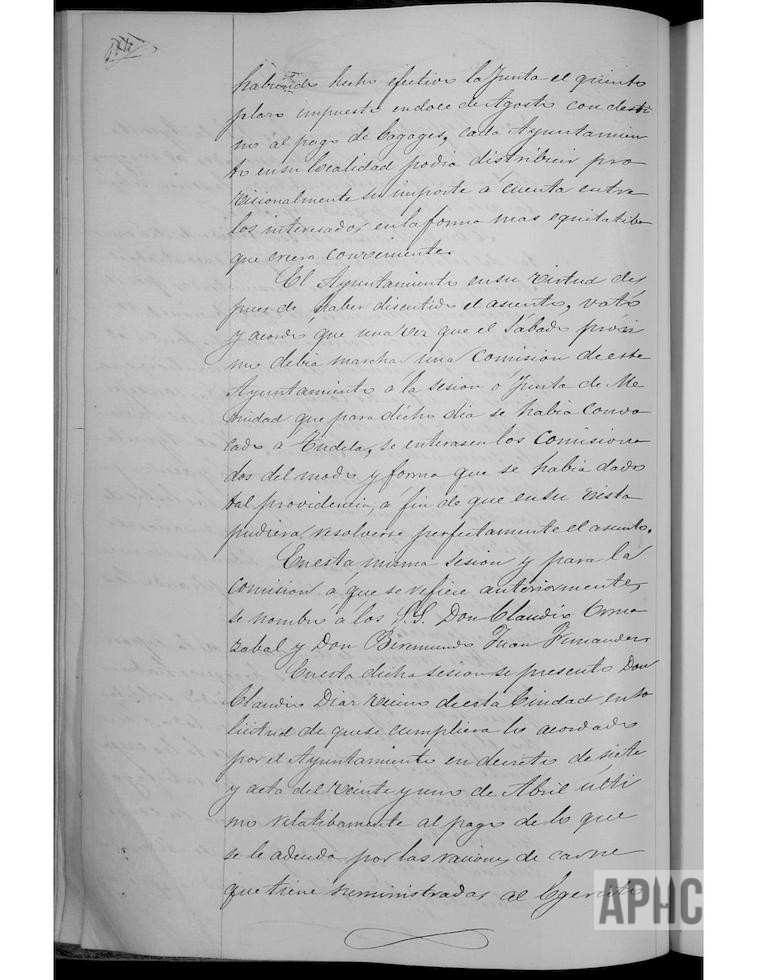 habiendo hecho efectivo la Junta el quinto
plazo impuesto en doce de Agosto con desti
no al pago de bagages, cada Ayuntamien
to en su localidad podia distribuir pro
visionalmente su importe á cuenta entre
los interesados en la forma mas equitatiba
que creera conveniente.
El Ayuntamiento en su virtud des
pues de haber discutido el asunto, votó
y acordó que una vez que el Sábado próxi
mo debia marchar una Comision de este
Ayuntamiento á la sesion ó Junta de Me
rindad que para dicho dia se habia convo
cado á Tudela, se enterasen los Comisiona
dos del modo y forma que se habia dado
tal providencia, á fin de que en su vista
pudiera resolverse perfectamente el asunto.
En esta misma sesion y para la
Comision á que se refiere anteriormente,
se nombró á los S.S. Don Claudio Arma
zabal y Don Bieremundo Juan Fernandez.
En esta dicha sesion se presentó Don
Claudio Diaz vecino de esta Ciudad en so
licitud de que se cumpliera lo acordado
por el Ayuntamiento en decreto de siete
y acta del veinte y uno de Abril últi
mo relatibamente al pago de lo que
se le adeuda por las raciones de carne
que tiene suministradas al Egercito
APHC